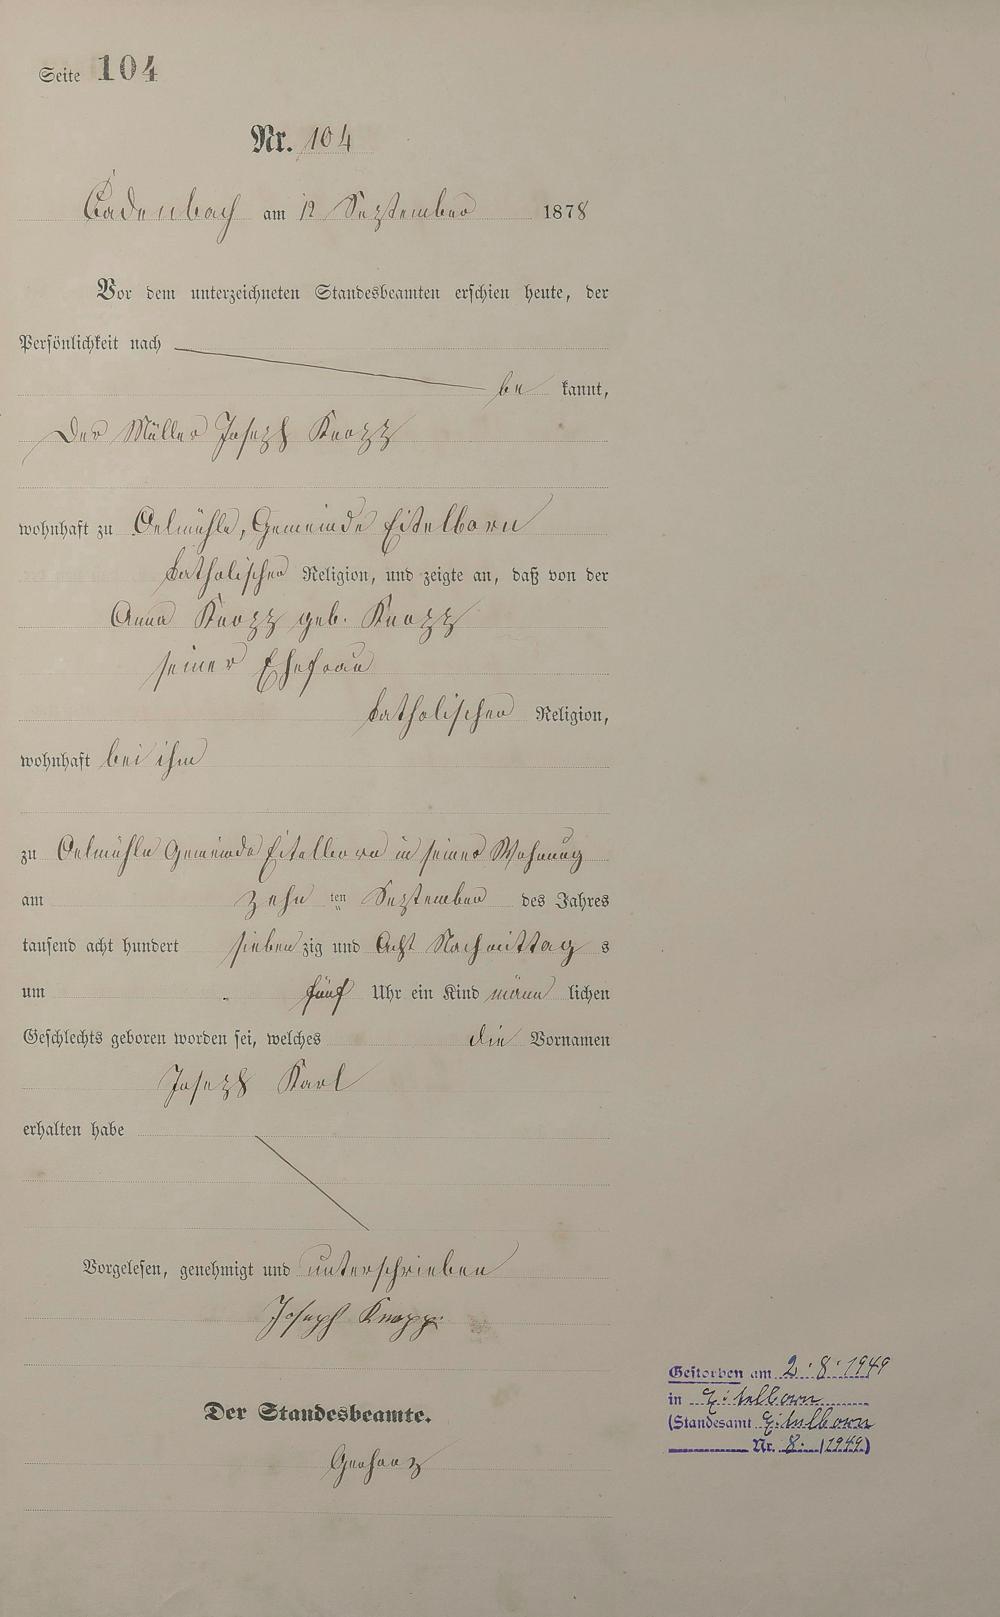 Seite 104
Nr. 104
Cadenbach am 12 September 1878
Vor dem unterzeichneten Standesbeamten erschien heute, der
Persönlichkeit nach
be kannt,
Der Müller Joseph Knopp
wohnhaft zu Oelmühle, Gemeinde Eitelborn
katholischer Religion, und zeigte an, daß von der
Anna Knopp geb. Knopp
seiner Ehefrau
katholischer Religion,
wohnhaft bei ihm
zu Oelmühle Gemeinde Eitelborn in seiner Wohnung
am zehn ten September des Jahres
tausend acht hundert sieben zig und Acht Nachmittag s
um fünf Uhr ein Kind männ lichen
Geschlechts geboren worden sei, welches die Vornamen
Joseph Karl
erhalten habe
Vorgelesen, genehmigt und unterschrieben
Joseph Knopp
Der Standesbeamte.
Gestorben am 2.8.1949
in Eitelborn
(Standesamt Eitelborn
Nr. 8. /1949)